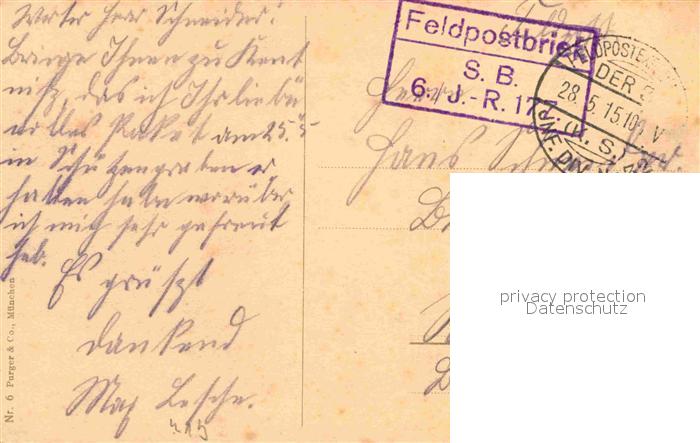 Werter Herr Schneider!
Bringe Ihnen zu Kent
niß, das ich Ihr liebe
volles Paket am 25.5
in Schützengraben er
halten habe worüber
ich mich sehr gefreut
hab.
Es grüßt
dankend
Max
Nr. 6 Purger & Co., München
Feldpostbrief
S. B.
6. J.-R. 17
FELDPOSTEX
DER
28.5.15.10
V
(K. S.)
Herrn
Hans
privacy protection
Datenschutz